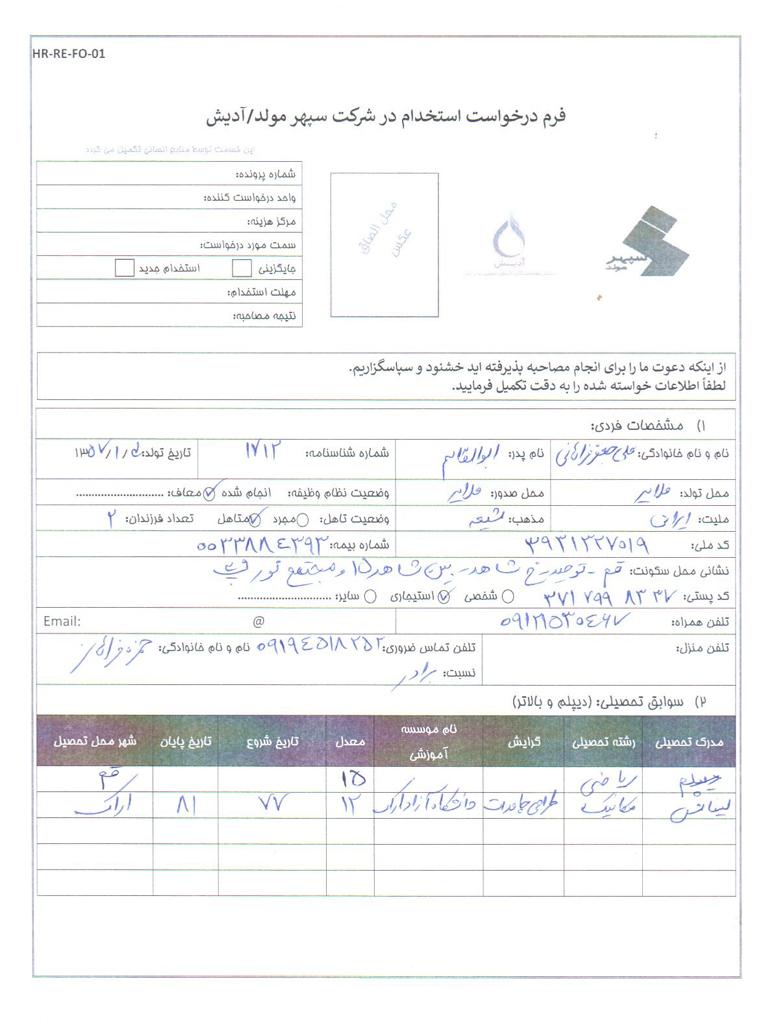 HR-RE-FO-01
فرم درخواست استخدام در شرکت سپهر مولد/آدیش
این قسمت توسط منابع انسانی تکمیل می گردد
شماره پرونده:
واحد درخواست کننده:
مرکز هزینه:
سمت مورد درخواست:
جایگزینی استخدام جدید
مهلت استخدام:
نتیجه مصاحبه:
محل الصاق
عکس
آدیش
سپهر
مولد
از اینکه دعوت ما را برای انجام مصاحبه پذیرفته اید خشنود و سپاسگزاریم.
لطفاً اطلاعات خواسته شده را به دقت تکمیل فرمایید.
۱) مشخصات فردی:
نام و نام خانوادگی: علی جعفر نام پدر: ابوالقاسم شماره شناسنامه: ۱۷۱۲ تاریخ تولد: ۱۳۵۷/۱/
محل تولد: ملایر محل صدور: ملایر وضعیت نظام وظیفه: انجام شده معاف: ............................
ملیت: ایرانی مذهب: شیعه وضعیت تاهل: مجرد متاهل تعداد فرزندان: ۲
کد ملی: ۳۹۳۱۳۲۷۰۱۹ شماره بیمه: ۰۰۳۳۸۸۴۳۹۳
نشانی محل سکونت: قم - توحید - خ شاهد - بین شاهد ۱۵ و مجتمع نور
کد پستی: ۳۷۱ ۷۹۹ ۸۳ ۳۷ شخصی استیجاری سایر: ..............................
تلفن همراه: ۰۹۱۲۱۵۳۰۴۶۷ Email: @
تلفن منزل: تلفن تماس ضروری: ۰۹۱۹۴۵۱۸۲۵۲ نام و نام خانوادگی: حمزه
نسبت: برادر
۲) سوابق تحصیلی: (دیپلم و بالاتر)
مدرک تحصیلی رشته تحصیلی گرایش نام موسسه آموزشی معدل تاریخ شروع تاریخ پایان شهر محل تحصیل
دیپلم ریاضی ۱۵ قم
لیسانس مکانیک طراحی جامدات دانشگاه آزاد اراک ۱۲ ۷۷ ۸۱ اراک